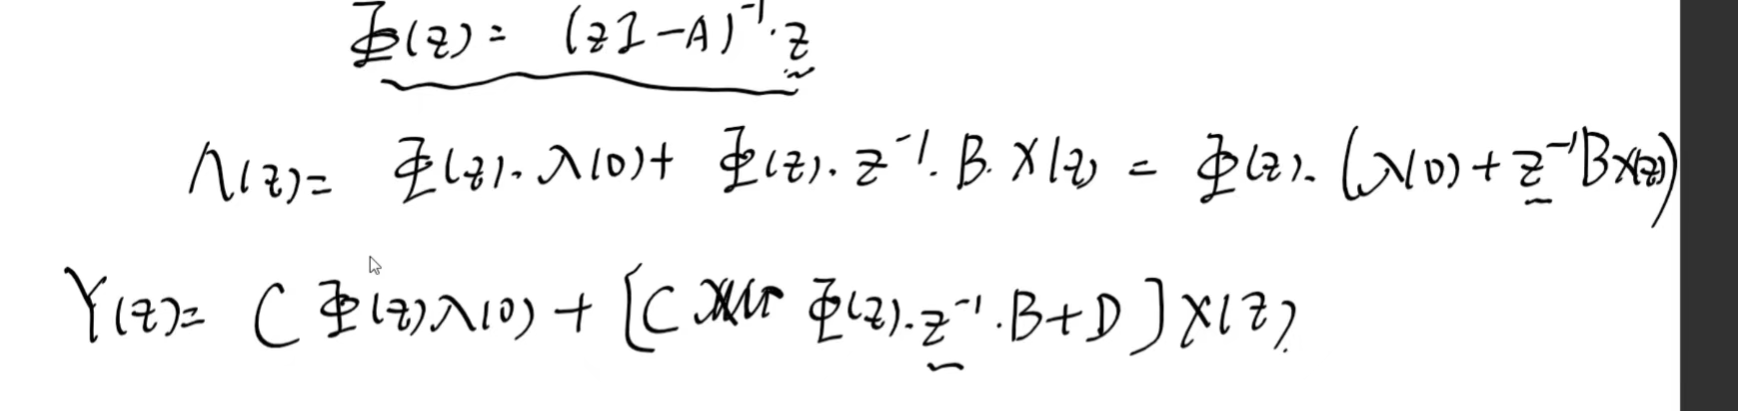 Φ(z) = (zI-A)⁻¹·z
Λ(z) = Φ(z)·λ(0) + Φ(z)·z⁻¹·B·X(z) = Φ(z)·(λ(0) + z⁻¹BX(z))
Y(z) = CΦ(z)λ(0) + [C Φ(z)·z⁻¹·B+D]X(z)